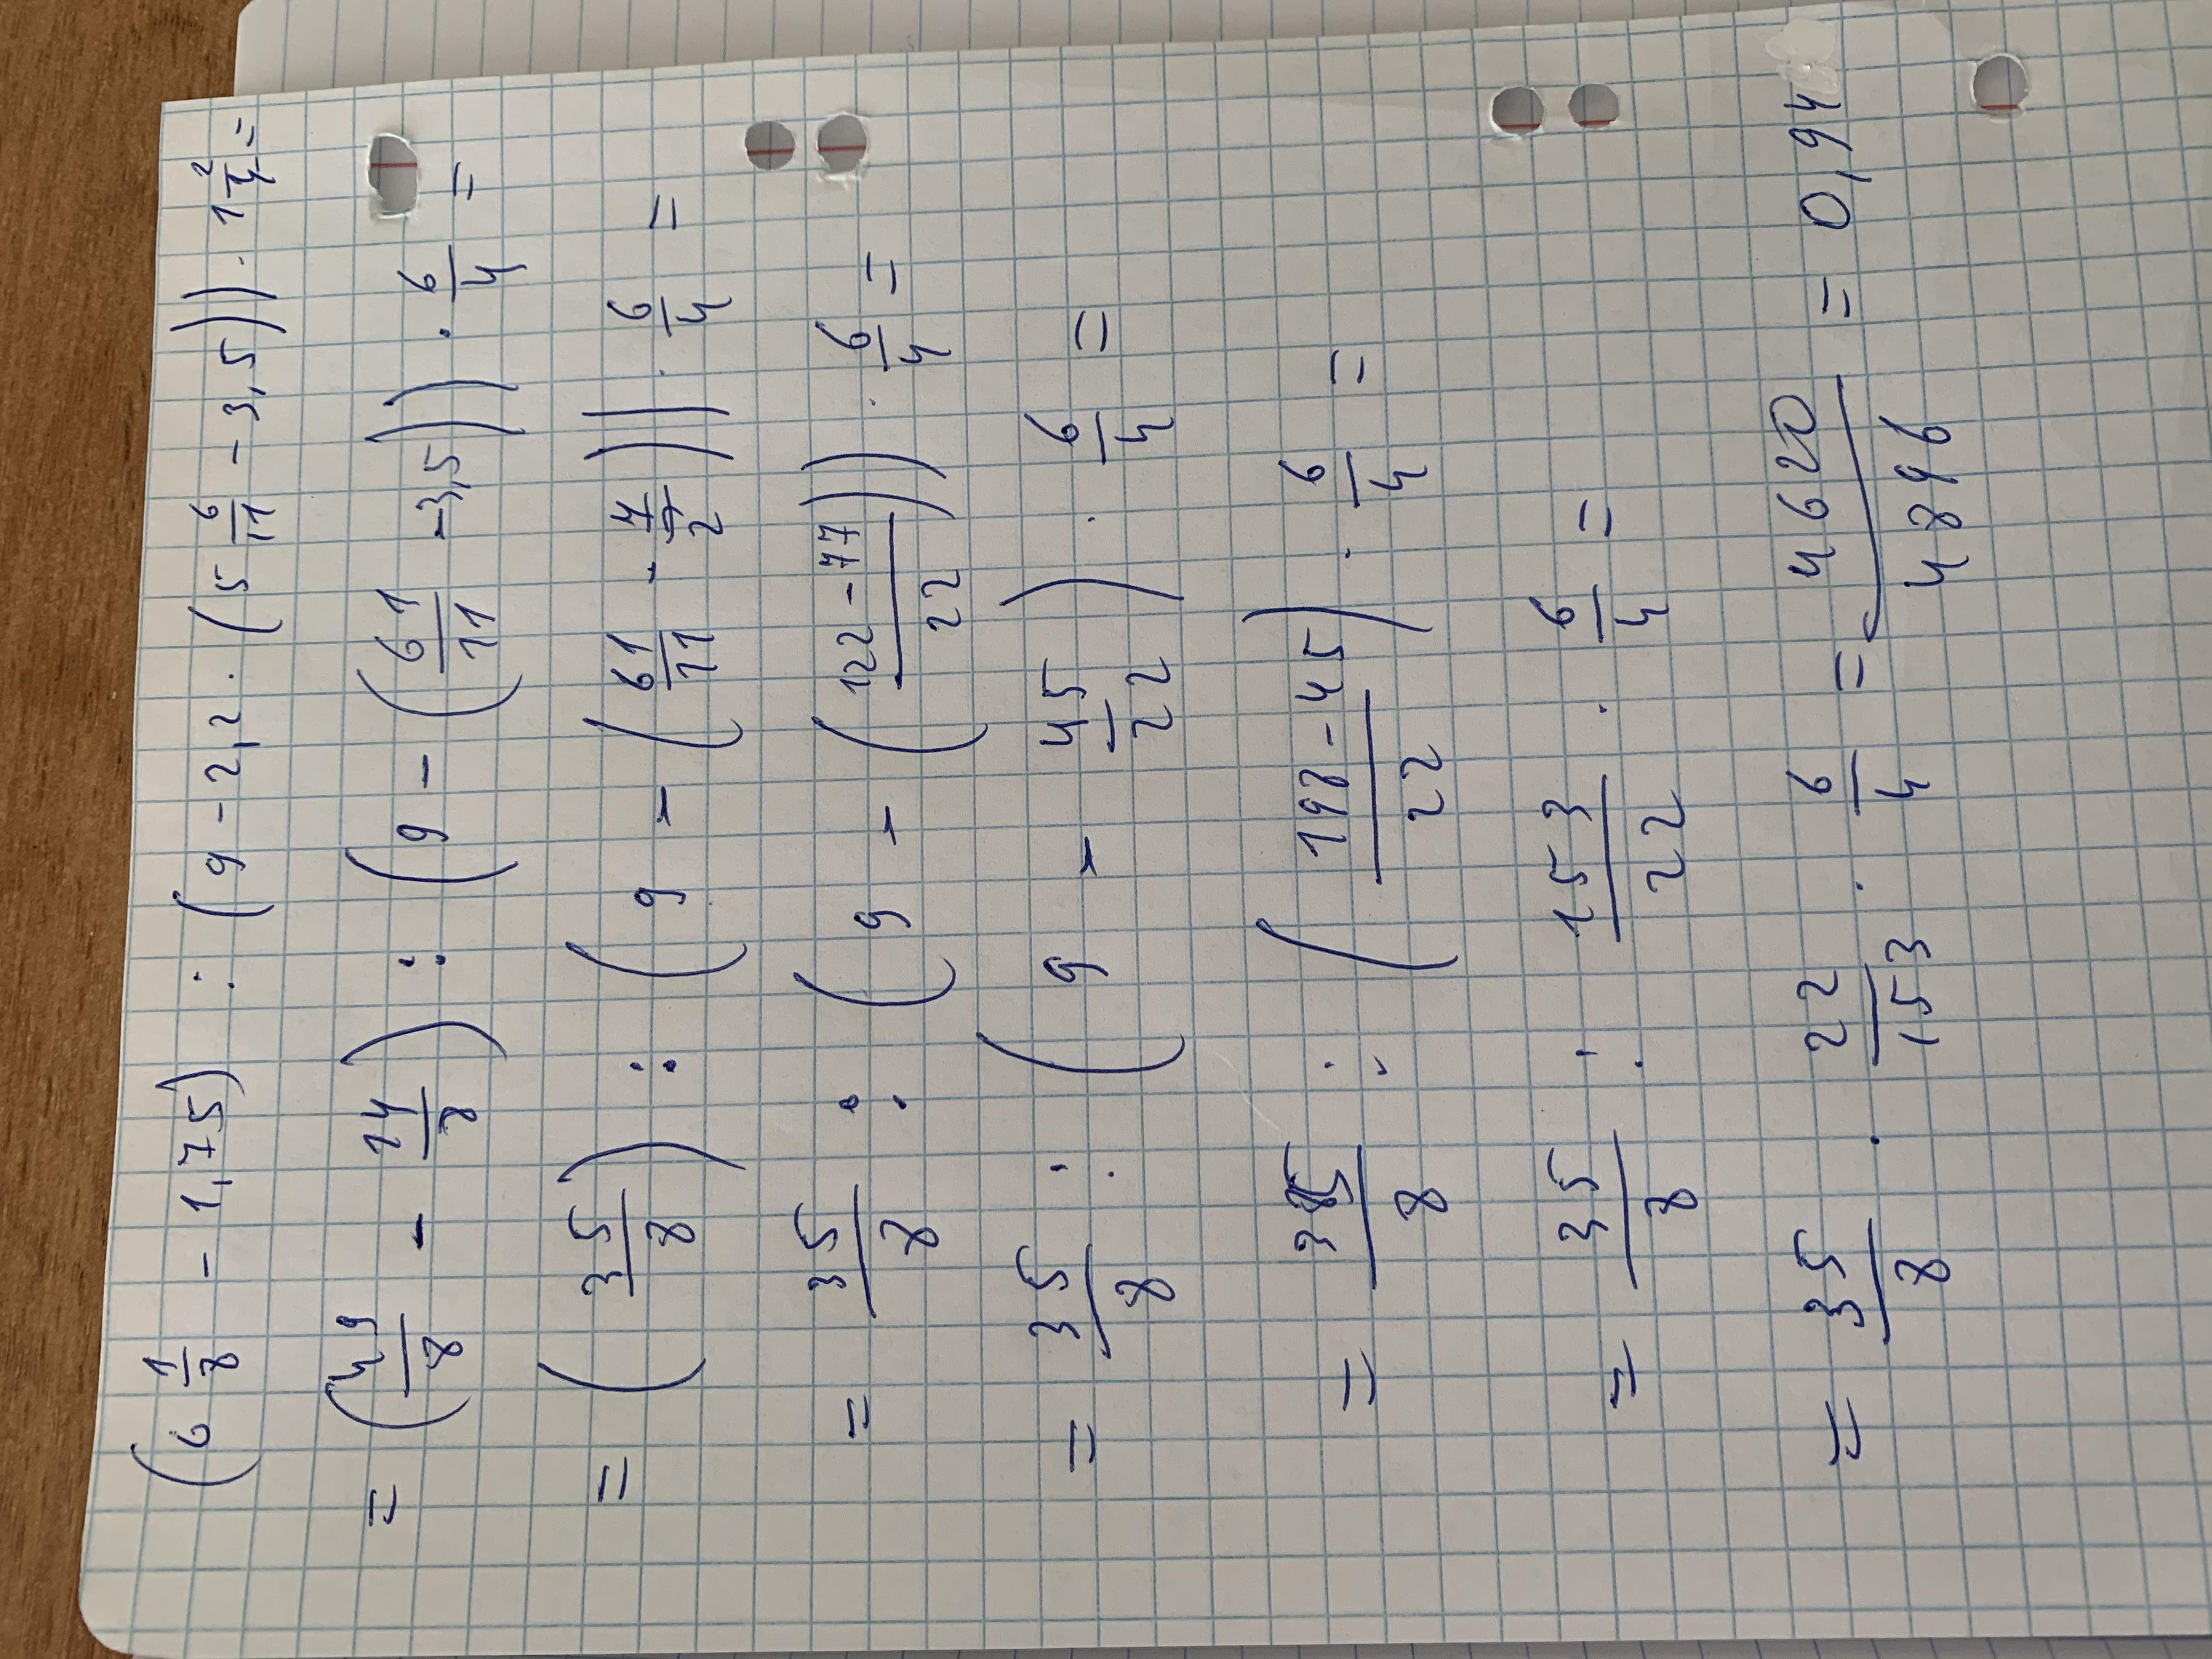 (6 1/8 - 1,75) : (9 - 2,2 · (5 6/11 - 3,5)) · 1 2/4 =
= (49/8 - 14/8) : (9 - (61/11 - 3,5)) · 6/4 =
= (35/8) : (9 - (61/11 - 7/2)) · 6/4 =
= 35/8 : (9 - (122 - 77/22)) · 6/4 =
= 35/8 : (9 - 45/22) · 6/4 =
= 35/8 : (198 - 45/22) · 6/4 =
= 35/8 : 153/22 · 6/4 =
= 35/8 · 22/153 · 6/4 = 4620/4896 = 0,94